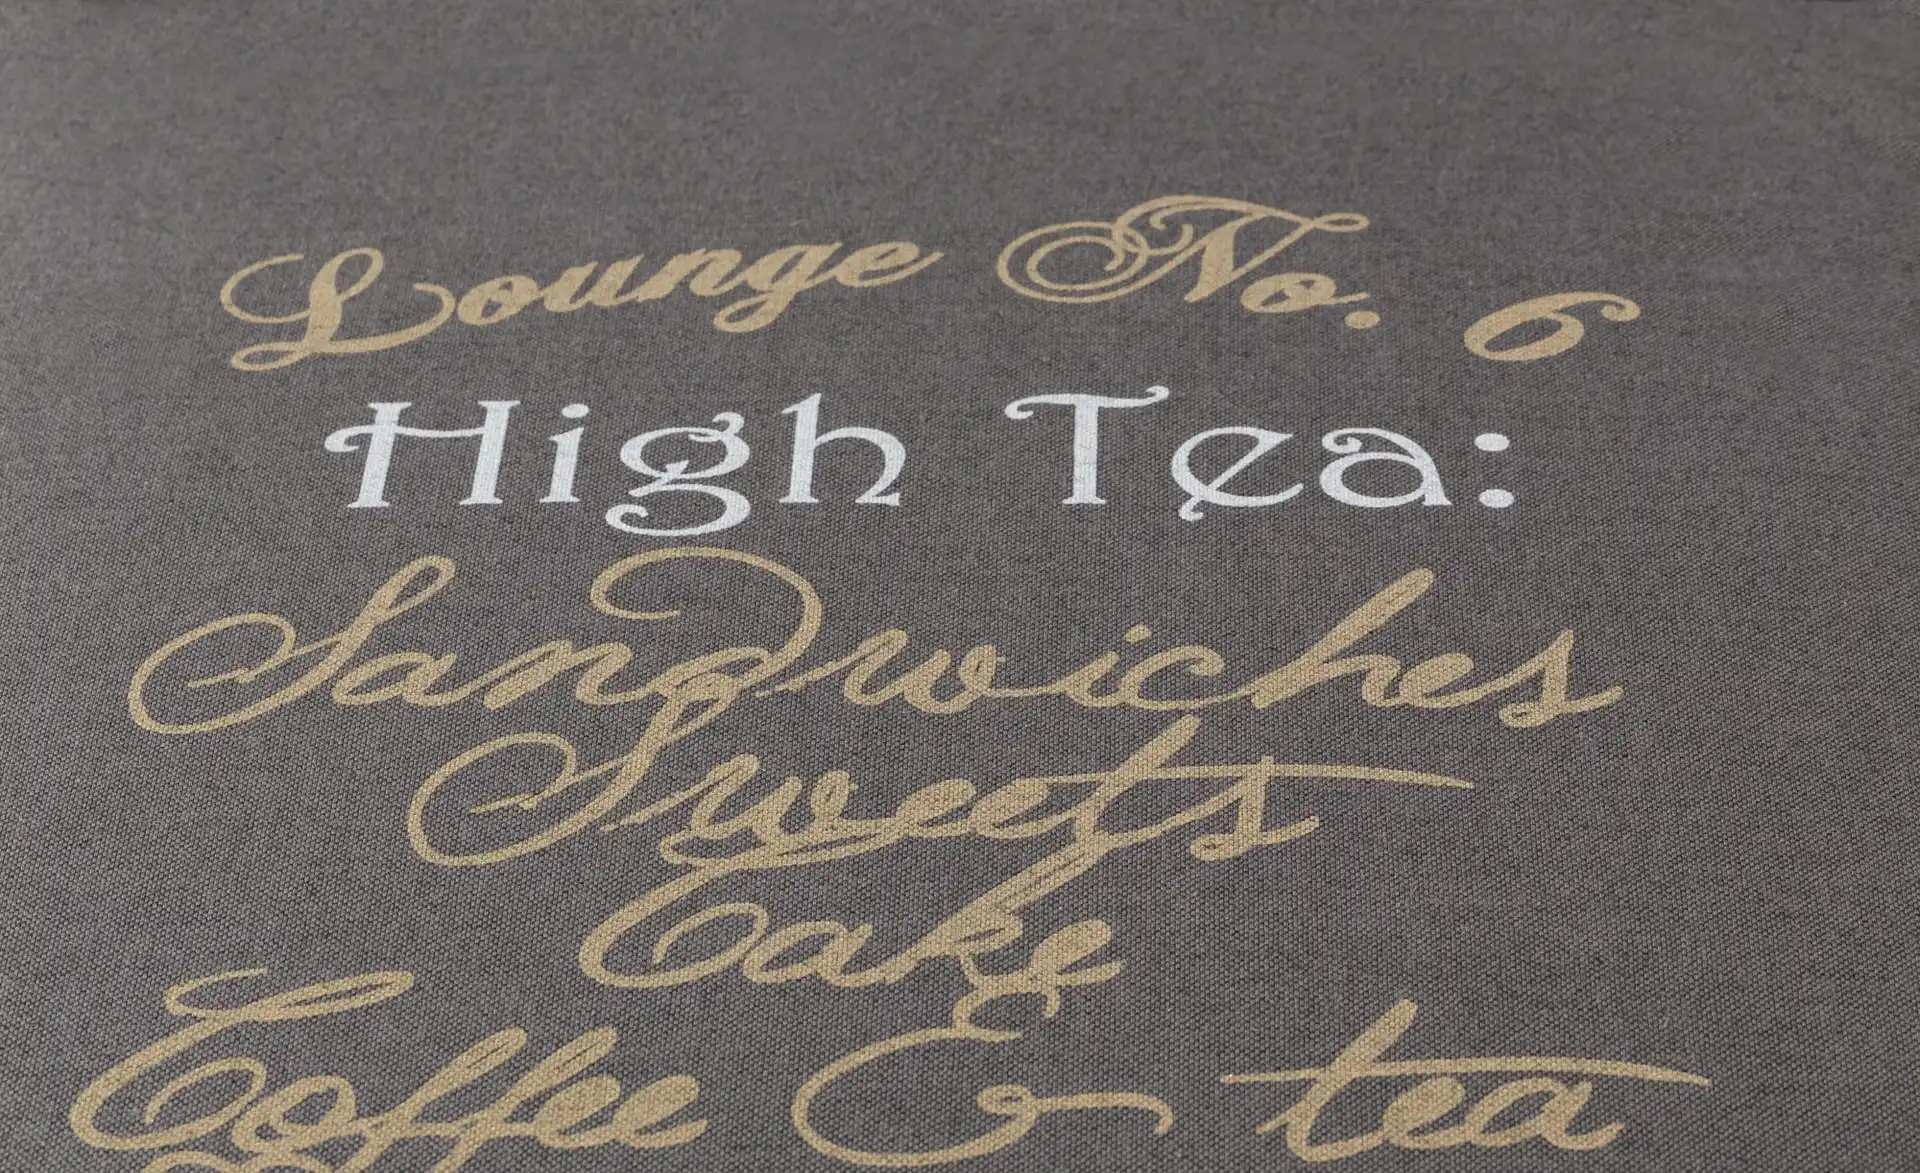 Lounge No. 6
High Tea:
Sandwiches
Sweets
Cake
Coffee & tea